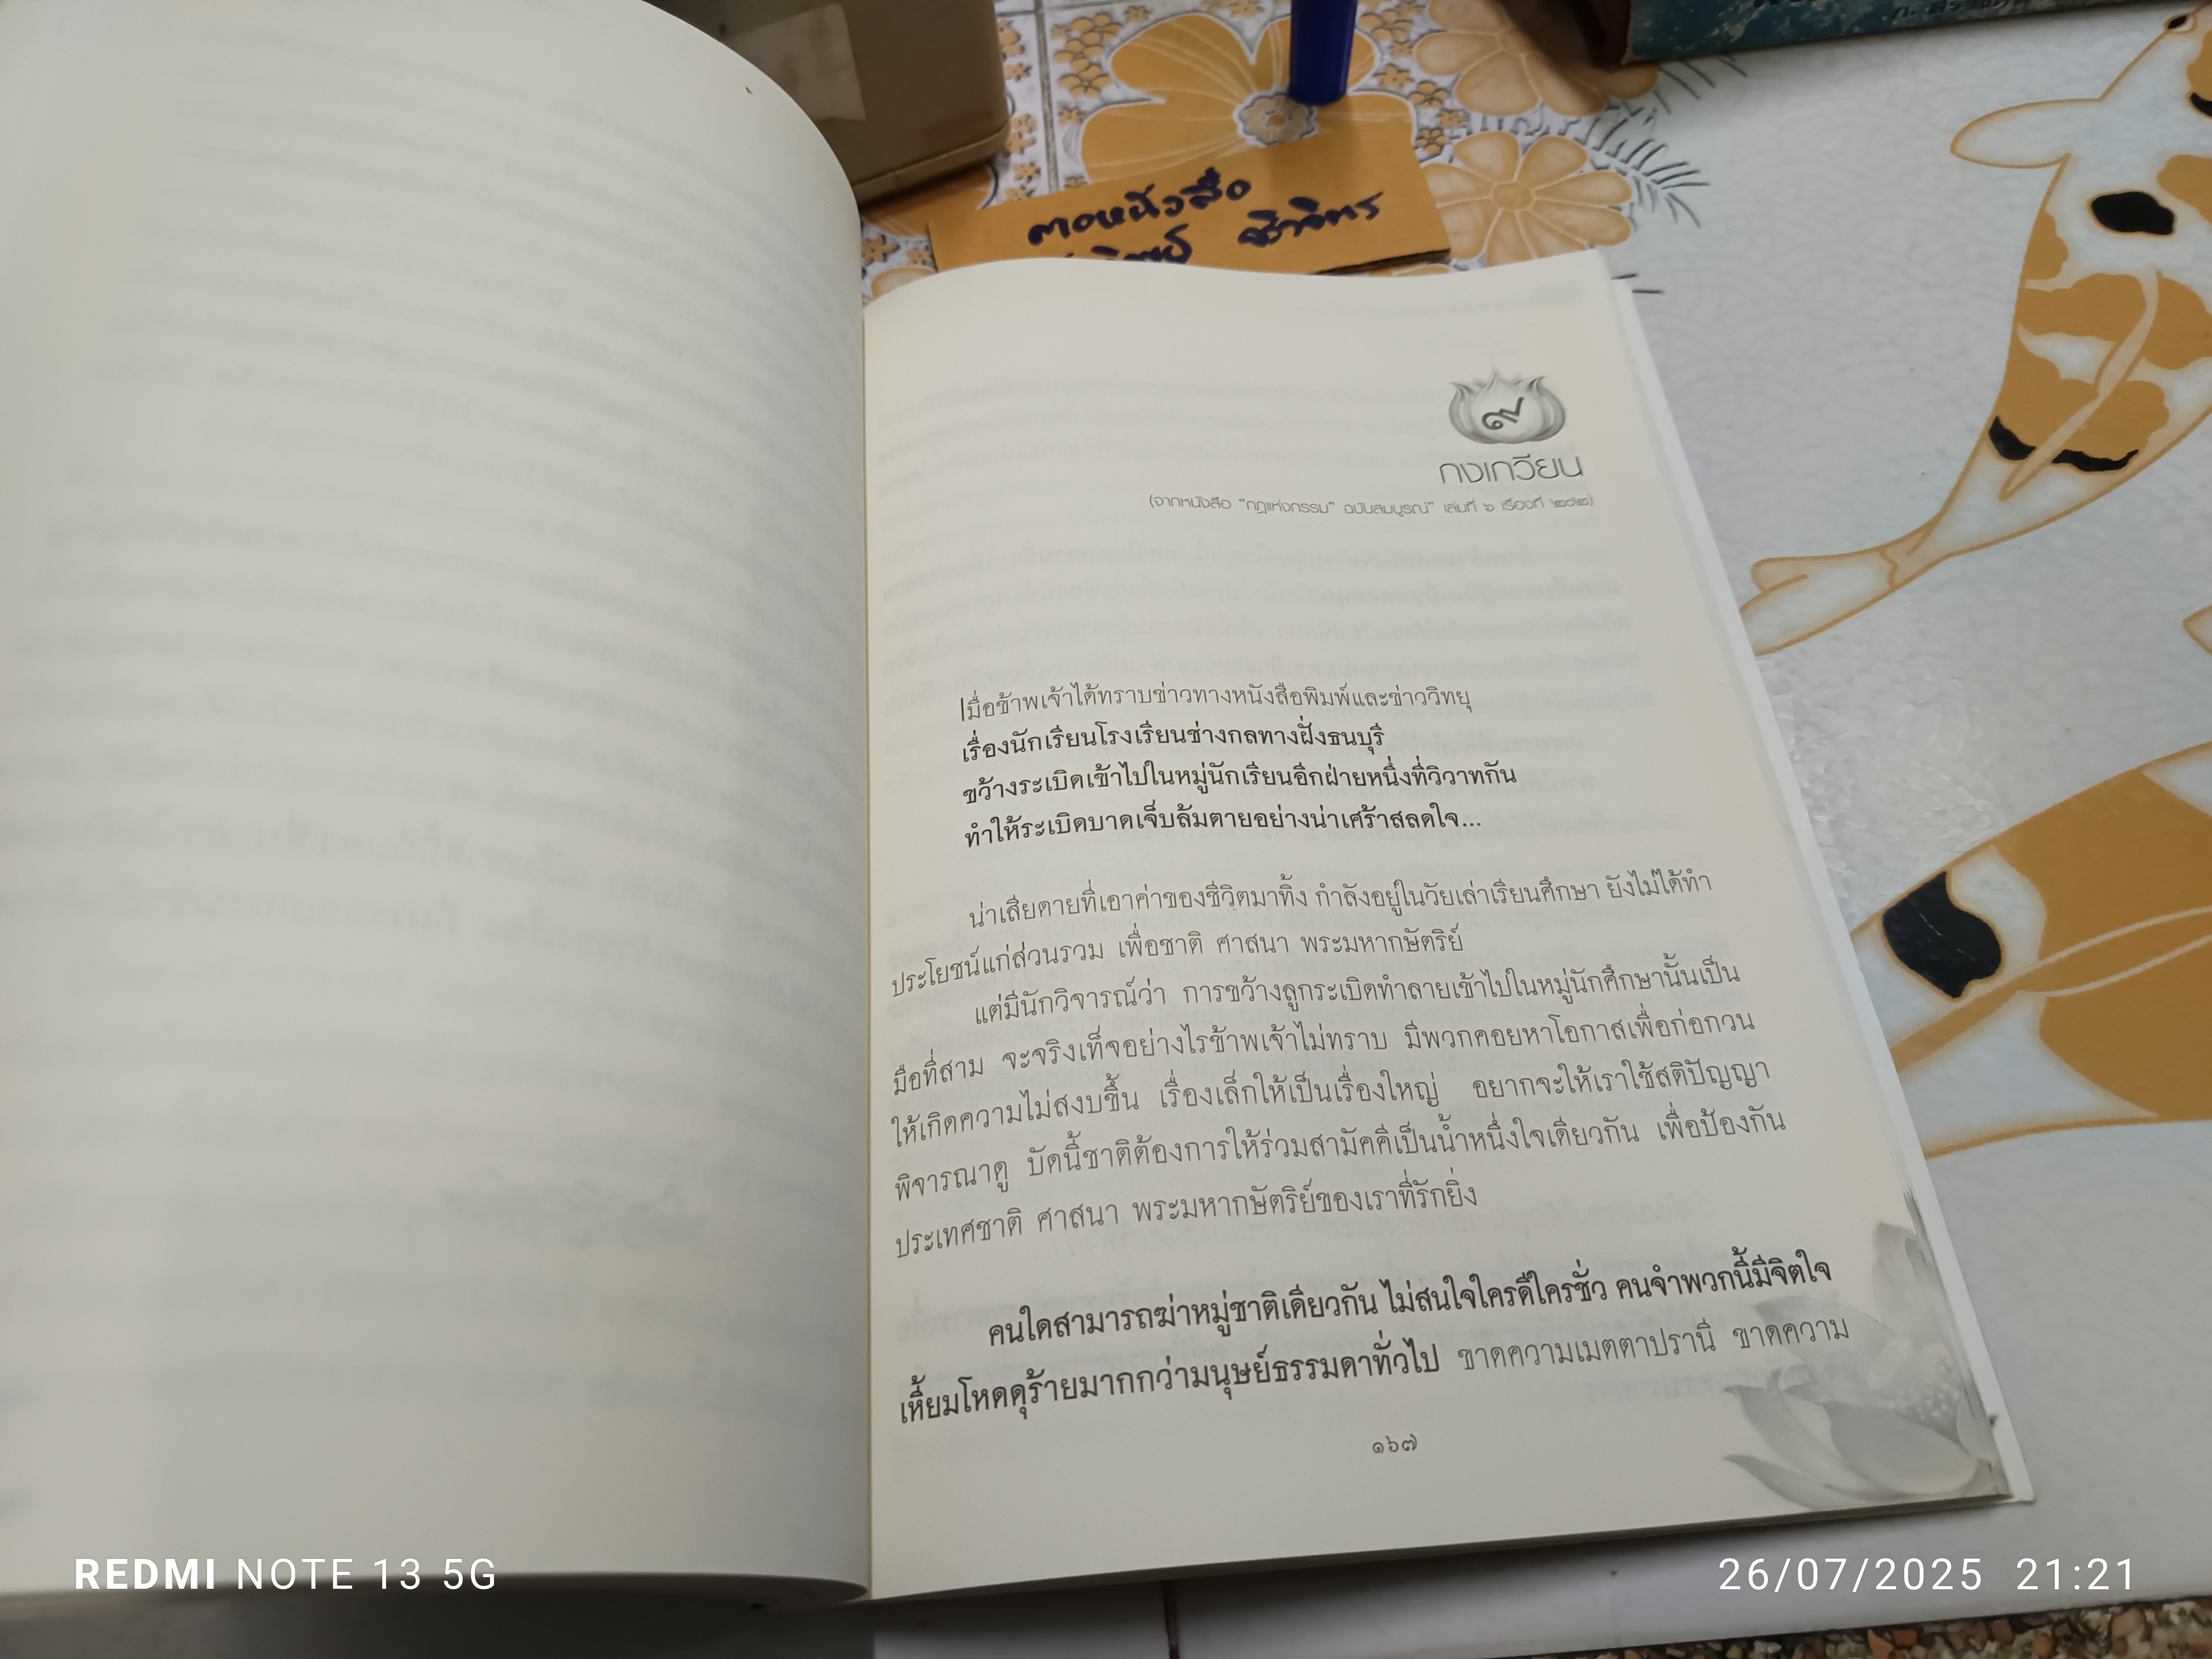 ตอหนังสือ
๙
กงเกวียน
(จากหนังสือ "กฎแห่งกรรม" ฉบับสมบูรณ์" เล่มที่ ๖ เรื่องที่ ๒๗๒)
เมื่อข้าพเจ้าได้ทราบข่าวทางหนังสือพิมพ์และข่าววิทยุ
เรื่องนักเรียนโรงเรียนช่างกลทางฝั่งธนบุรี
ขว้างระเบิดเข้าไปในหมู่นักเรียนอีกฝ่ายหนึ่งที่วิวาทกัน
ทำให้ระเบิดบาดเจ็บล้มตายอย่างน่าเศร้าสลดใจ...
น่าเสียดายที่เอาค่าของชีวิตมาทิ้ง กำลังอยู่ในวัยเล่าเรียนศึกษา ยังไม่ได้ทำ
ประโยชน์แก่ส่วนรวม เพื่อชาติ ศาสนา พระมหากษัตริย์
แต่มีนักวิจารณ์ว่า การขว้างลูกระเบิดทำลายเข้าไปในหมู่นักศึกษานั้นเป็น
มือที่สาม จะจริงเท็จอย่างไรข้าพเจ้าไม่ทราบ มีพวกคอยหาโอกาสเพื่อก่อกวน
ให้เกิดความไม่สงบขึ้น เรื่องเล็กให้เป็นเรื่องใหญ่ อยากจะให้เราใช้สติปัญญา
พิจารณาดู บัดนี้ชาติต้องการให้ร่วมสามัคคีเป็นน้ำหนึ่งใจเดียวกัน เพื่อป้องกัน
ประเทศชาติ ศาสนา พระมหากษัตริย์ของเราที่รักยิ่ง
คนใดสามารถฆ่าหมู่ชาติเดียวกัน ไม่สนใจใครดีใครชั่ว คนจำพวกนี้มีจิตใจ
เหี้ยมโหดดุร้ายมากกว่ามนุษย์ธรรมดาทั่วไป ขาดความเมตตาปรานี ขาดความ
๑๖๗
REDMI NOTE 13 5G
26/07/2025 21:21